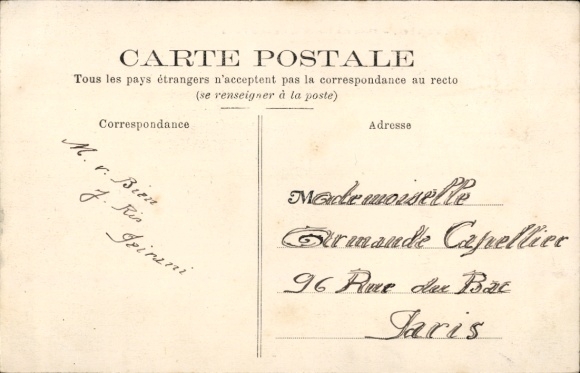 CARTE POSTALE
Tous les pays étrangers n'acceptent pas la correspondance au recto
(se renseigner à la poste)
Correspondance
Adresse
M. v. Bien
Mademoiselle
Armande Capellier
96 Rue du Bac
Paris